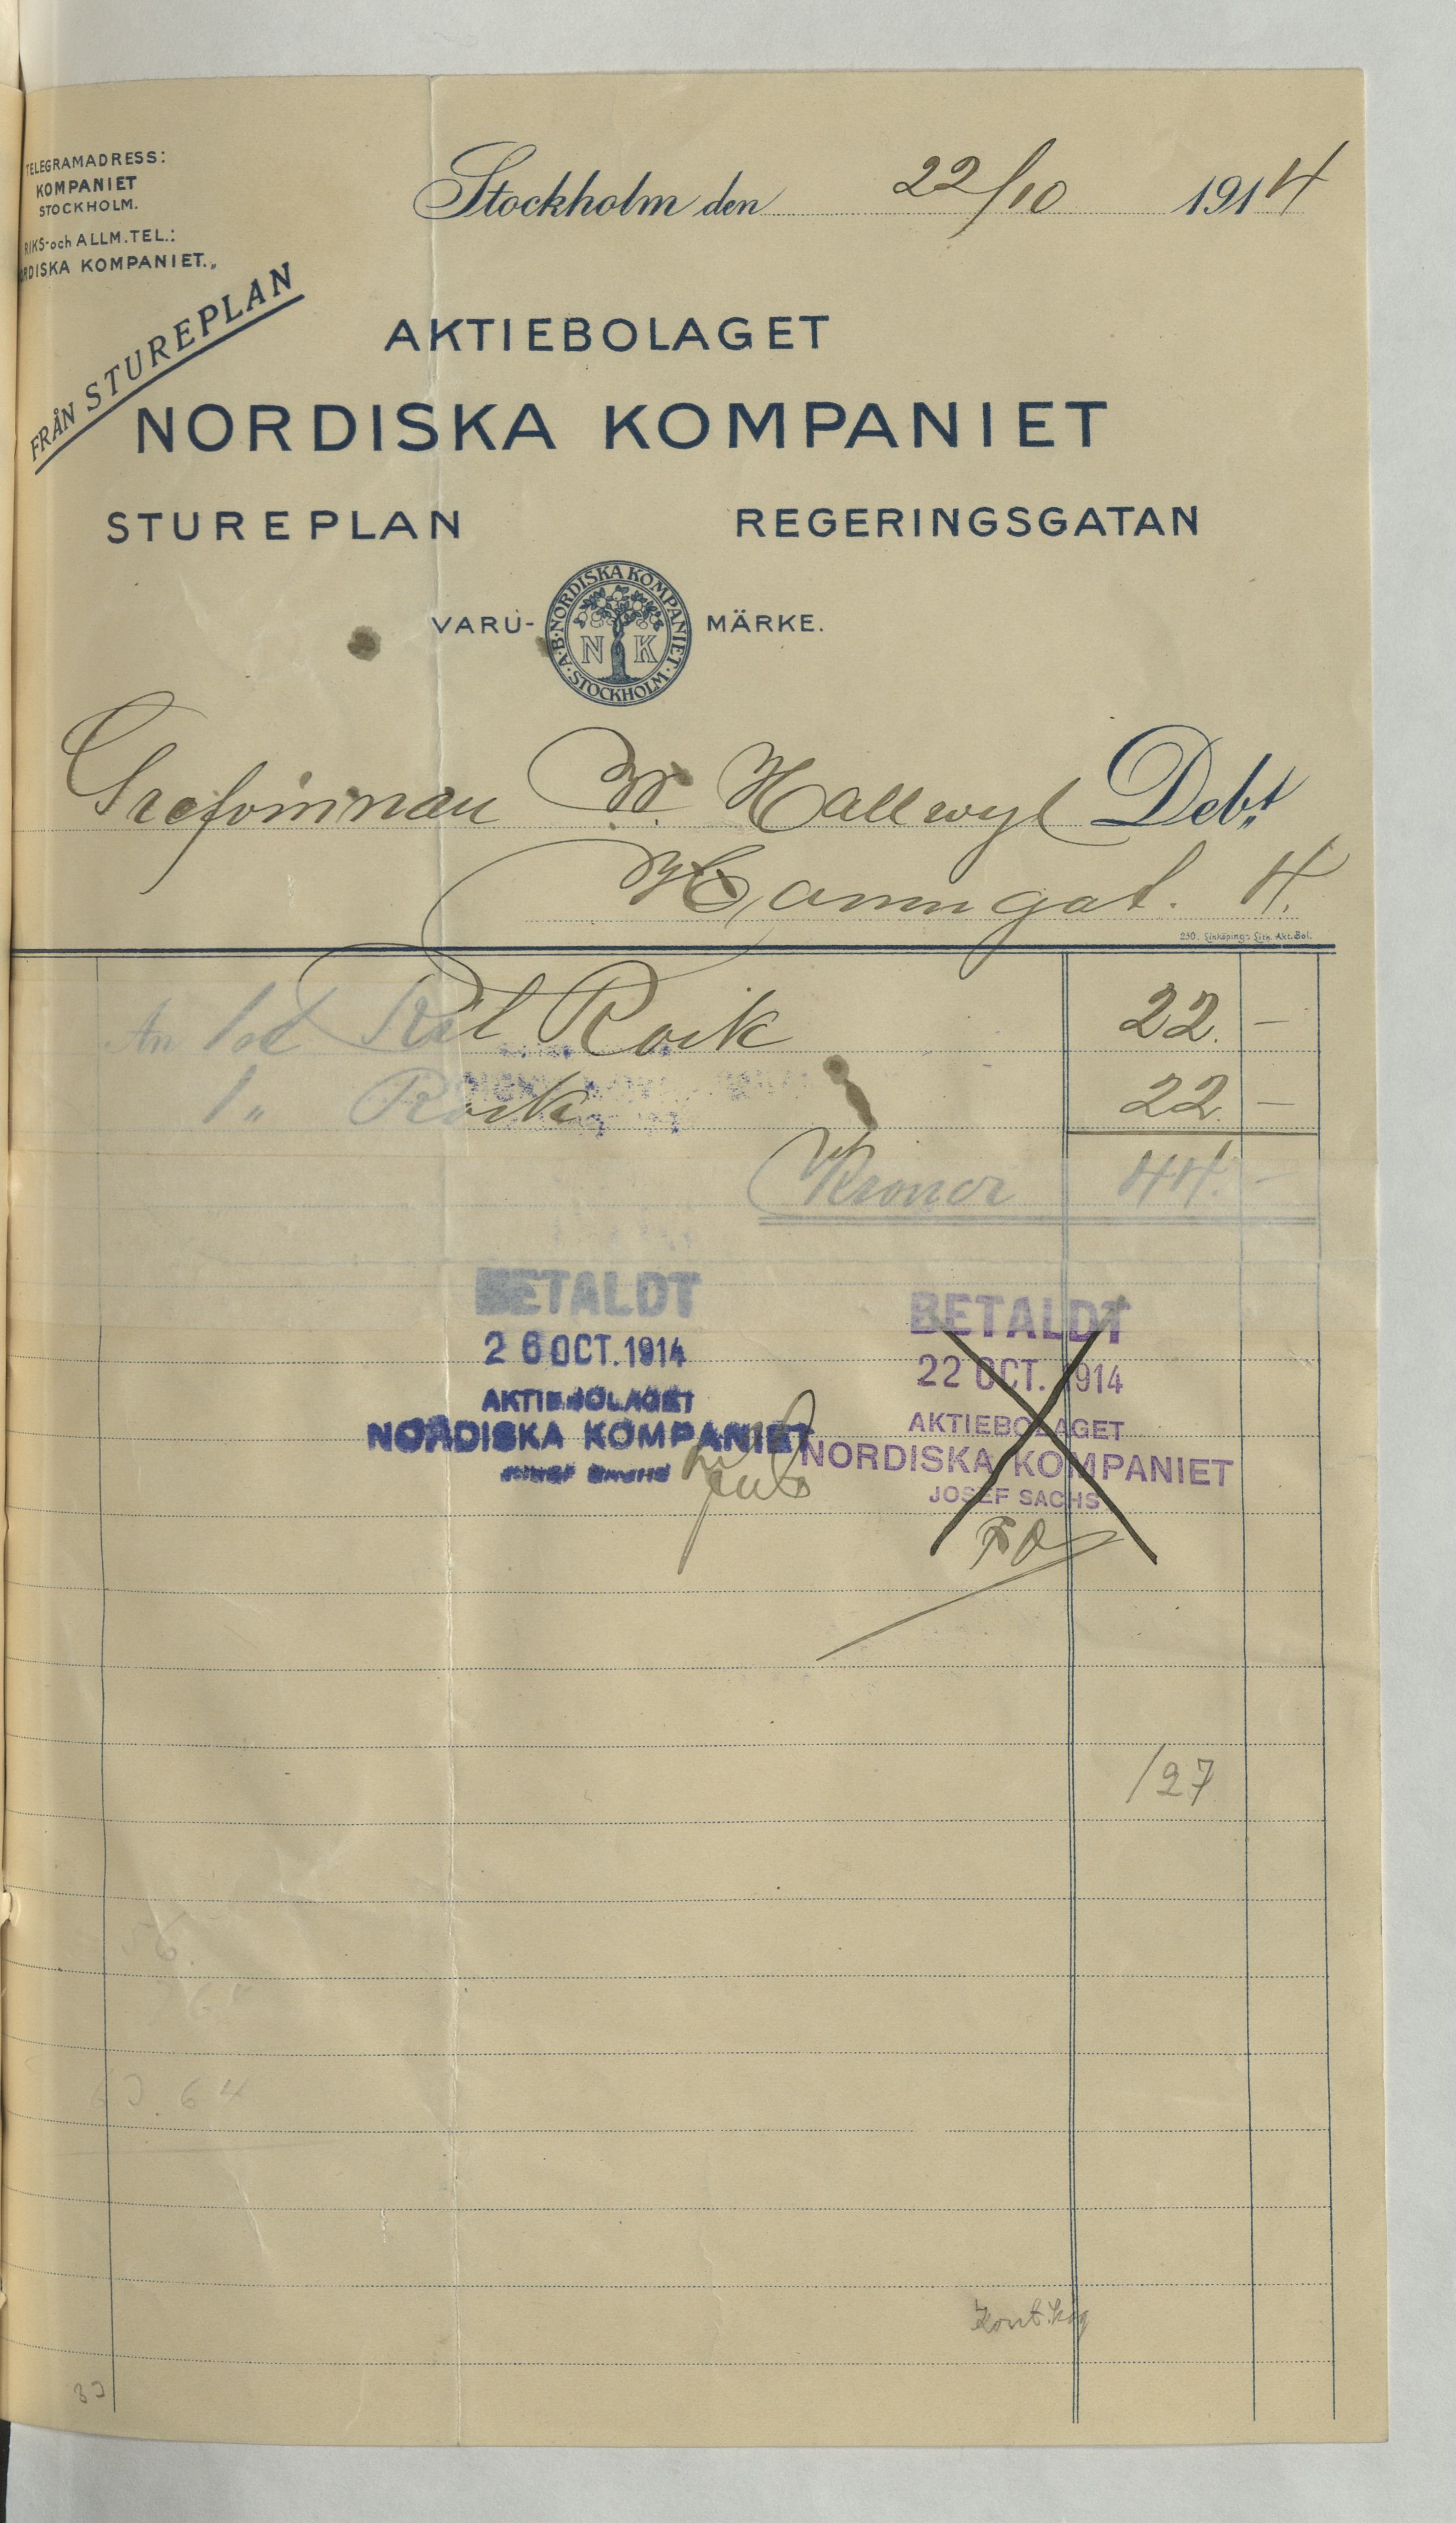 TELEGRAMADRESS:
KOMPANIET
STOCKHOLM.
RIKS- och ALLM. TEL.:
RDISKA KOMPANIET.„
FRÅN STUREPLAN
Stockholm den 22/10 1914
AKTIEBOLAGET
NORDISKA KOMPANIET
STUREPLAN REGERINGSGATAN
VARU- MÄRKE.
A.B. NORDISKA KOMPANIET. STOCKHOLM
N K
Grefvinnan W. Hallwyl Debt.
Hamngat. 4.
230. Linköpings Lith. Akt. Bol.
An 1 st Rock 22. —
1 „ Rock 22. —
Kronor 44. —
BETALDT
26 OCT. 1914
AKTIEBOLAGET
NORDISKA KOMPANIET
BETALDT
22 OCT. 1914
AKTIEBOLAGET
NORDISKA KOMPANIET
JOSEF SACHS
/27
56.
60.64